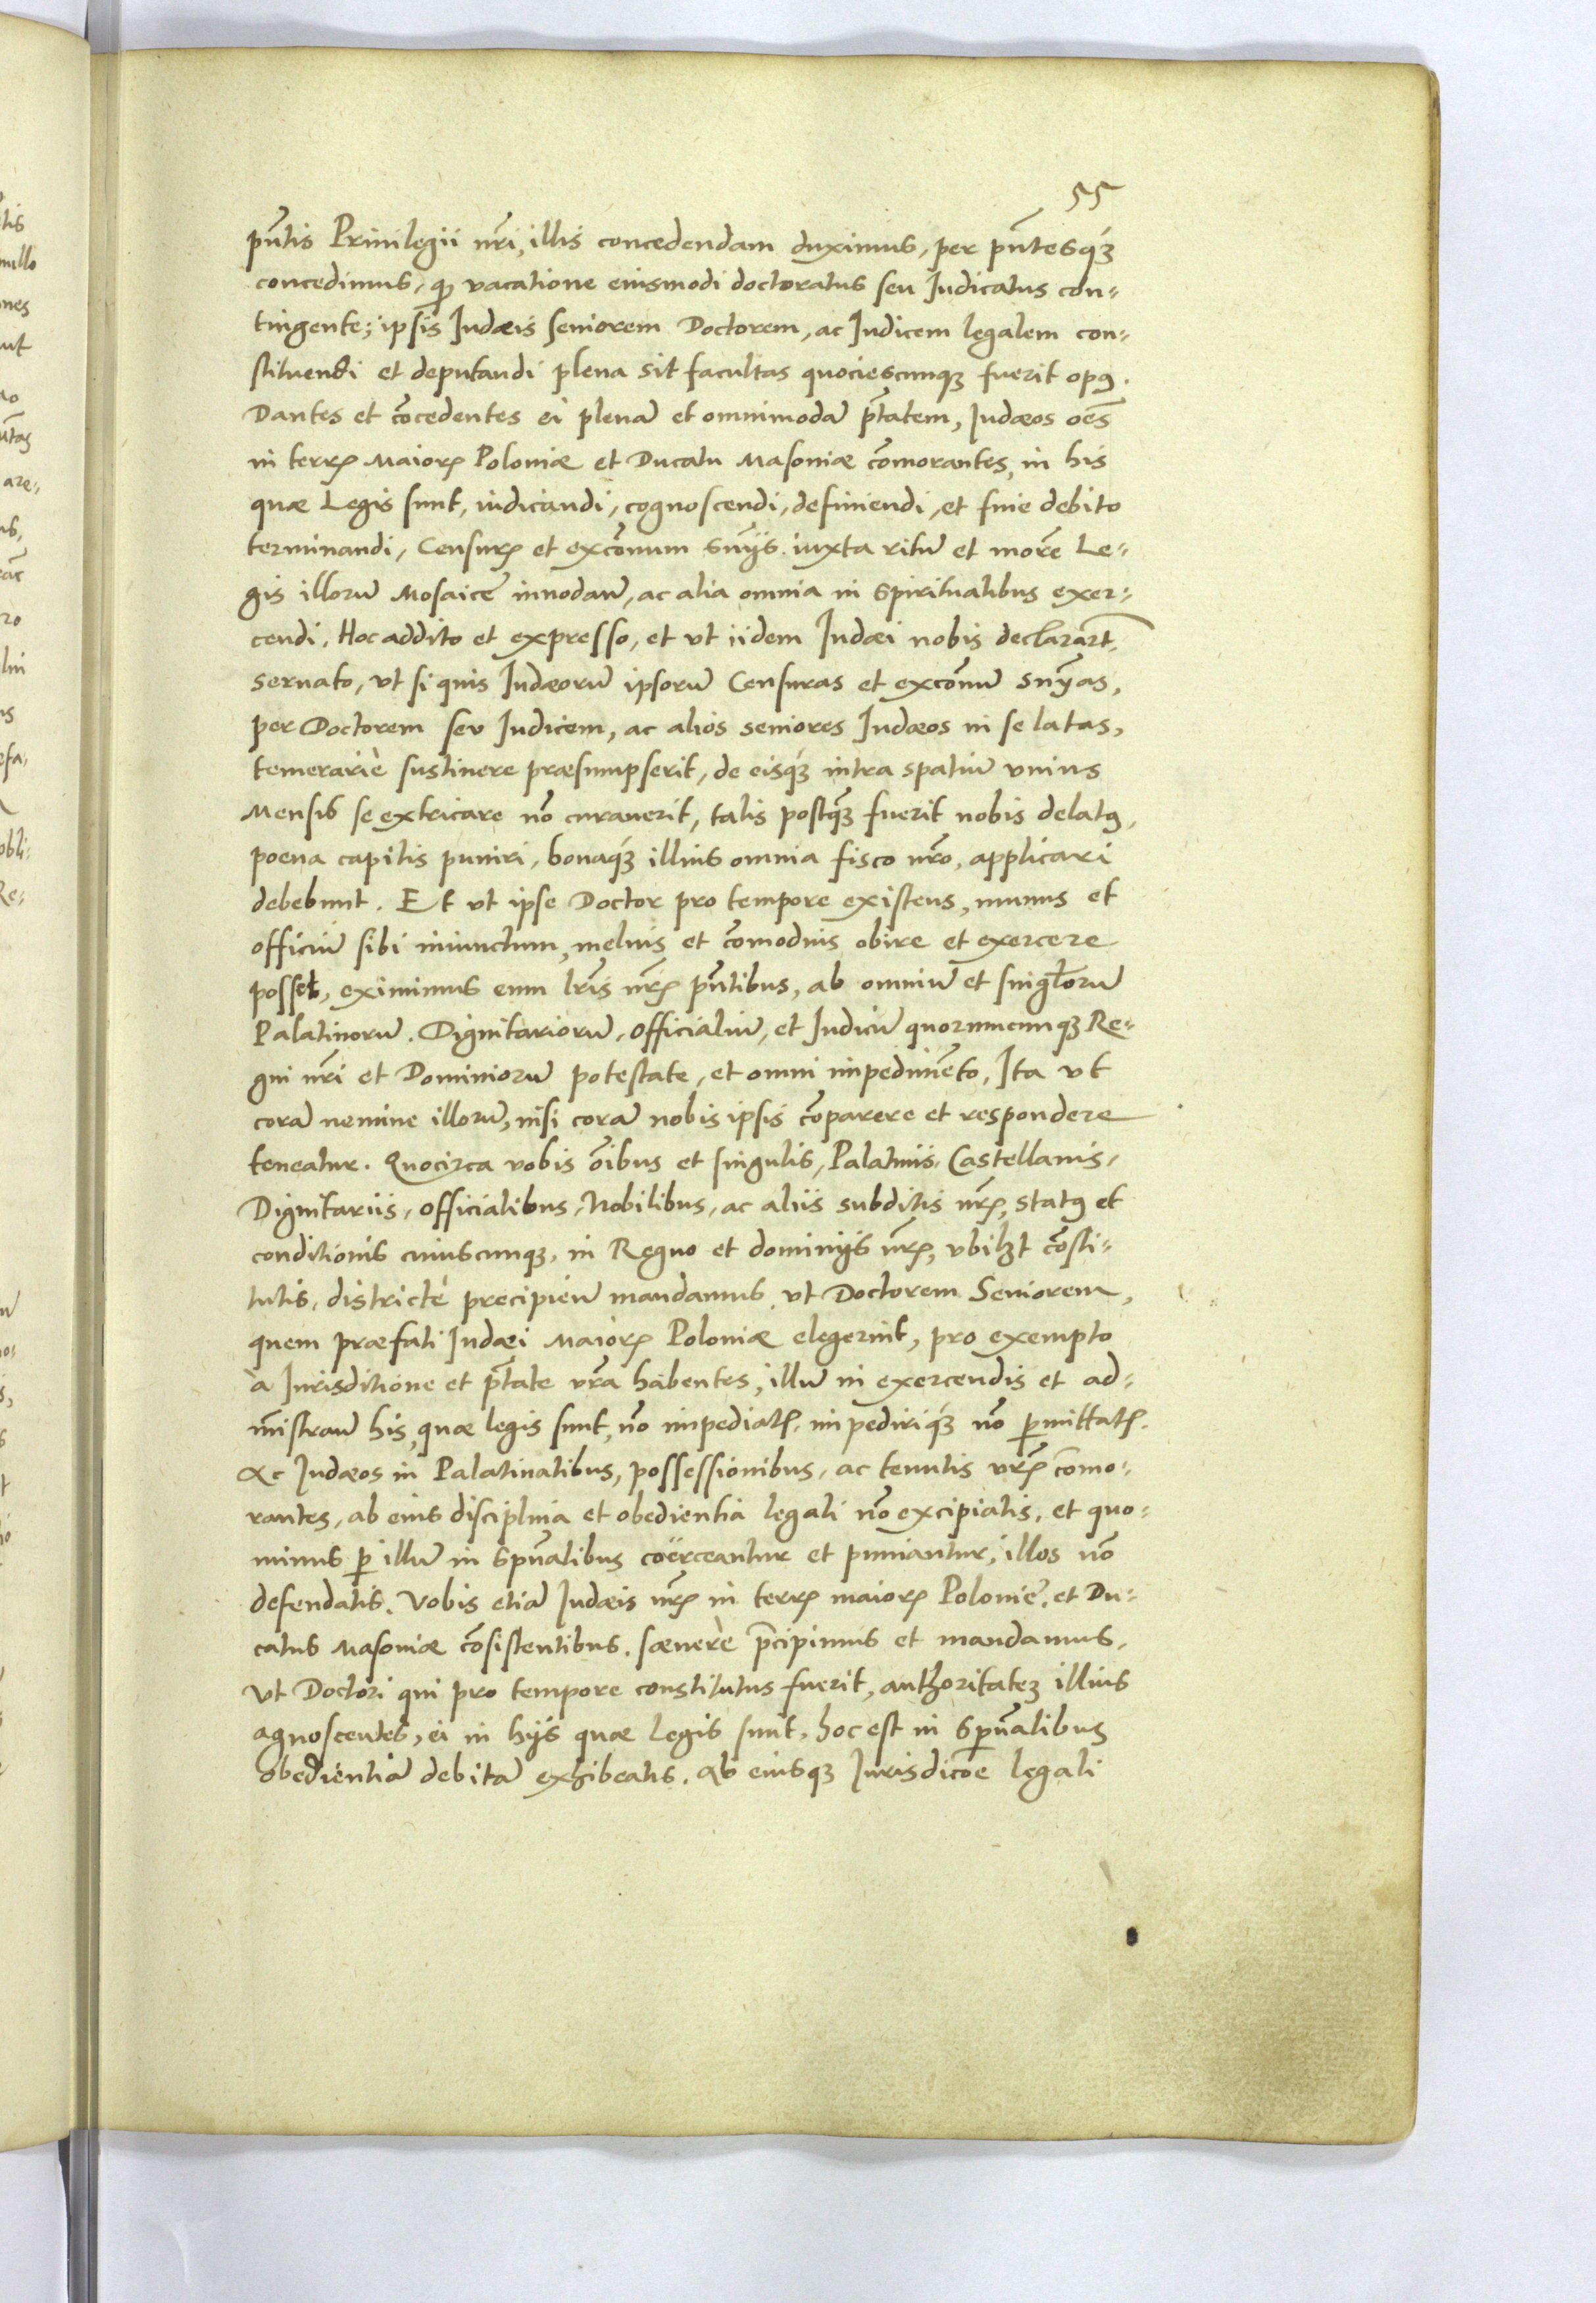 55
pñtis Priuilegii nr̃i, illis concedendam duximus, per pñtesq́ꝫ
concedimus, qꝫ vacatione eiusmodi doctoratus seu Iudicatus con-
tingente; ipsis Iudæis seniorem Doctorem, ac Iudicem legalem con-
stituendi et deputandi plena sit facultas quociescunqꝫ fuerit opꝰ.
Dantes et cõcedentes ei plenã et omnimodã ptãtem, Iudæos oẽs
in terrꝭ Maiorꝭ Poloniæ et Ducatu Masouiæ cõmorantes, in his
quæ Legis sunt, iudicandi, cognoscendi, definiendi, et fine debito
terminandi, Censurꝭ et excõmum sñijs iuxta ritũ et morẽ Le-
gis illorũ Mosaicę innodañ, ac alia omnia in spiritualibus exer-
cendi. Hoc addito et expresso, et vt iidem Iudæi nobis declarar̃t
seruato, vt si quis Iudæorũ ipsorũ Censuras et excõmu sñias,
per Doctorem seu Iudicem, ac alios seniores Iudæos in se latas,
temerariè sustinere præsumpserit, de eisq́ꝫ intra spatiũ vnius
Mensis se extricare nõ curauerit, talis postq̃ꝫ fuerit nobis delatꝰ,
poena capitis puniri, bonaq́ꝫ illius omnia fisco nr̃o, applicari
debebunt. Et vt ipse Doctor pro tempore existens, munus et
officiũ sibi iniunctum, melius et cõmodius obire et exercere
posset, eximimus eum lr̃is nr̃ꝭ pñtibus, ab omniũ et singl̃orũ
Palatinorũ, Dignitariorũ, Officialiũ, et Iudicũ quorumcunqꝫ Re-
gni nr̃i et Dominiorũ potestate, et omni impedimẽto, Ita vt
corã nemine illorũ, nisi corã nobis ipsis cõparere et respondere
teneatur. Quocirca vobis õibus et singulis, Palatinis, Castellanis,
Dignitariis, Officialibus, Nobilibus, ac aliis subditis nr̃ꝭ, statꝰ et
conditionis cuiuscunqꝫ, in Regno et dominijs nr̃ꝭ, vbilꝫt cõsti-
tutis, districtè precipieñ mandamus, vt Doctorem Seniorem,
quem præfati Iudæi Maiorꝭ Poloniæ elegerint, pro exempto
à Iurisditione et ptãte vr̃a habentes, illũ in exercendis et ad-
mĩstrañ his, quæ legis sunt, nõ impediatꝭ, impediriq́ꝫ nõ ꝑmittatꝭ.
Ac Iudæos in Palatinatibus, possessionibus, ac tenutis vr̃ꝭ cõmo-
rantes, ab eius disciplina et obedientia legali nõ excipiatis, et quo-
minus ꝑ illũ in spũalibus coërceantur et puniantur, illos nõ
defendatis. Vobis etiã Iudæis nr̃ꝭ in terrꝭ maiorꝭ Polonię, et Du-
catus Masouiæ cõsistentibus, sæuerè p̃cipimus et mandamus,
vt Doctori qui pro tempore constitutus fuerit, authoritatẽ illius
agnoscentes, ei in hijs quæ legis sunt, hoc est in spũalibus
obedientiã debitã exhibeatis. Ab eiusqꝫ Iurisdicõe legali